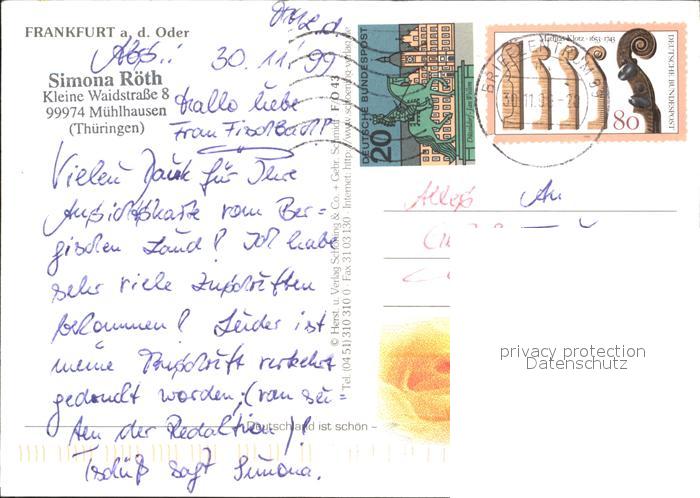 FRANKFURT a. d. Oder
Abs.:
30.11.99
Simona Röth
Kleine Waidstraße 8
99974 Mühlhausen
(Thüringen)
Hallo liebe
Frau Fischbach!!
Vielen Dank für Ihre
Ansichtskarte vom Ber=
gischen Land! Ich habe
sehr viele Zuschriften
bekommen! Leider ist
meine Anschrift verkehrt
gedruckt worden, (von sei=
ten der Redaktion)!
Tschüß sagt Simona.
– Deutschland ist schön –
© Herst. u. Verlag Schöning & Co. + Gebr. Schmidt
Tel. (04 51) 310 310 0 · Fax 31 03 130 · Internet: http://www.schoening-verlag.de
F.O 43
DEUTSCHE BUNDESPOST
20
Düsseldorf · Jan Wellem
Mathias Klotz · 1653-1743
DEUTSCHE BUNDESPOST
80
BRIEFZENTRUM 99
An
privacy protection
Datenschutz